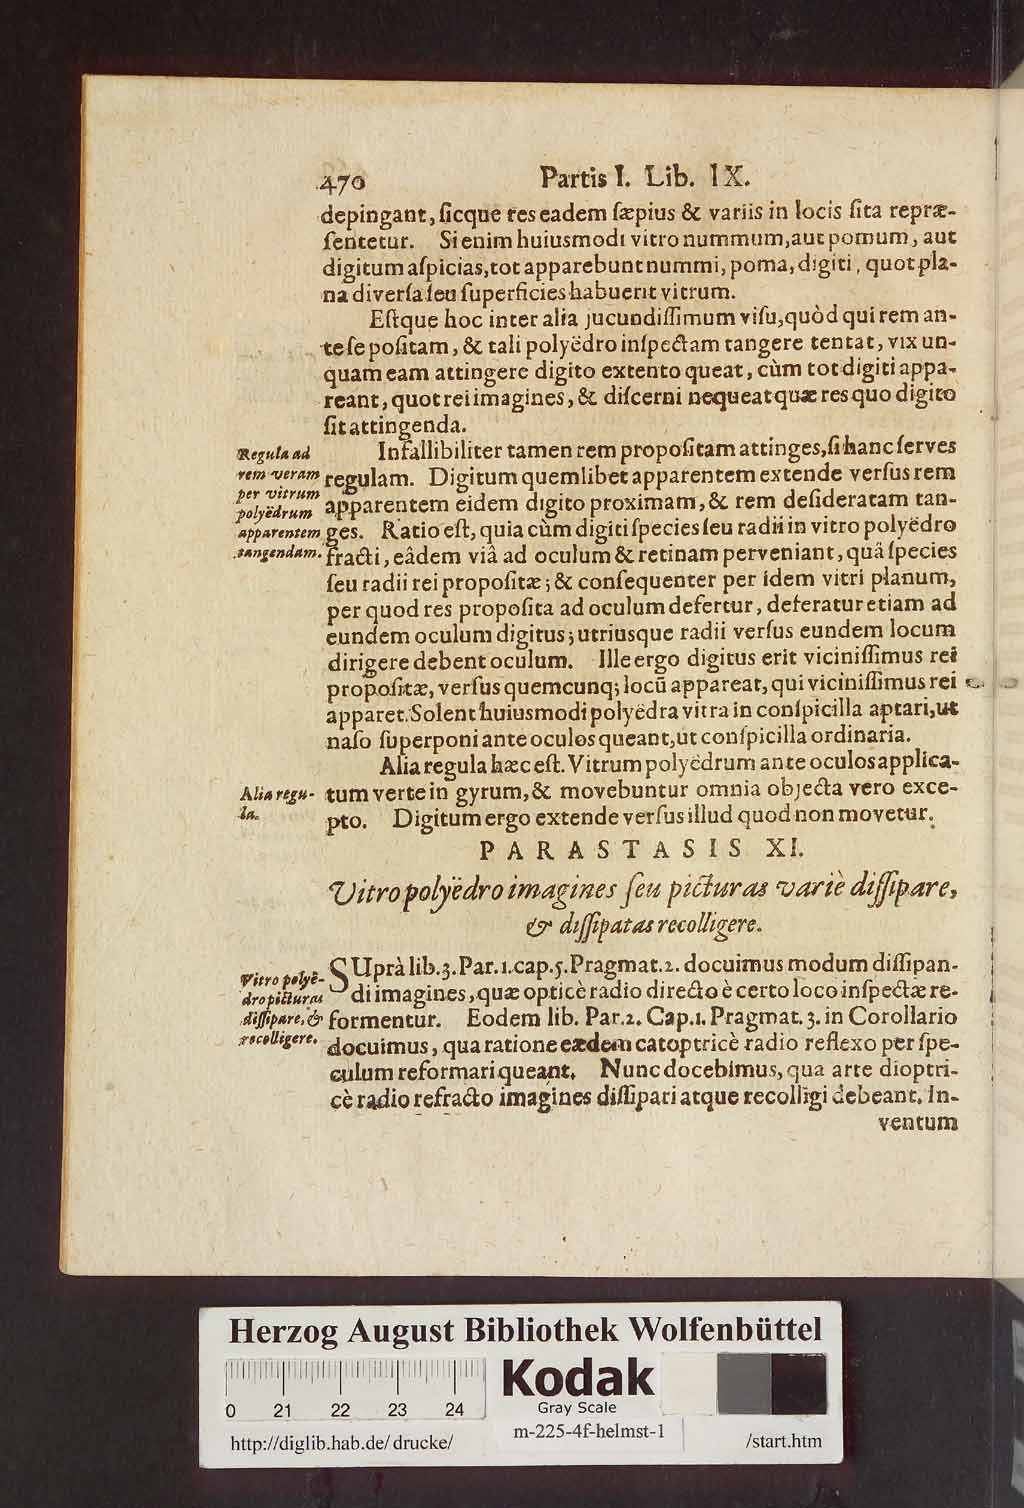 470 Partis I. Lib. IX.
depingant, ſicque res eadem ſæpius & variis in locis ſita repræ-
ſentetur. Si enim huiusmodi vitro nummum, aut pomum, aut
digitum aſpicias, tot apparebunt nummi, poma, digiti, quot pla-
na diverſa ſeu ſuperficies habuerit vitrum.
Eſtque hoc inter alia jucundiſſimum viſu, quòd qui rem an-
te ſe poſitam, & tali polyëdro inſpectam tangere tentat, vix un-
quam eam attingere digito extento queat, cùm tot digiti appa-
reant, quot rei imagines, & diſcerni nequeat quæ res quo digito
ſit attingenda.
Regula ad
rem veram
per vitrum
polyëdrum
apparentem
tangendam.
Infallibiliter tamen rem propoſitam attinges, ſi hanc ſerves
regulam. Digitum quemlibet apparentem extende verſus rem
apparentem eidem digito proximam, & rem deſideratam tan-
ges. Ratio eſt, quia cùm digiti ſpecies ſeu radii in vitro polyëdro
fracti, eâdem viâ ad oculum & retinam perveniant, quâ ſpecies
ſeu radii rei propoſitæ; & conſequenter per idem vitri planum,
per quod res propoſita ad oculum defertur, deferatur etiam ad
eundem oculum digitus; utriusque radii verſus eundem locum
dirigere debent oculum. Ille ergo digitus erit viciniſſimus rei
propoſitæ, verſus quemcunq; locū appareat, qui viciniſſimus rei
apparet. Solent huiusmodi polyëdra vitra in conſpicilla aptari, ut
naſo ſuperponi ante oculos queant, ut conſpicilla ordinaria.
Alia regu-
la.
Alia regula hæc eſt. Vitrum polyëdrum ante oculos applica-
tum verte in gyrum, & movebuntur omnia objecta vero exce-
pto. Digitum ergo extende verſus illud quod non movetur.
PARASTASIS XI.
Vitro polyëdro imagines ſeu picturas variè diſſipare,
& diſſipatas recolligere.
Vitro polyë-
dro picturas
diſſipare, &
recolligere.
SUprà lib. 3. Par. 1. cap. 5. Pragmat. 2. docuimus modum diſſipan-
di imagines, quæ opticè radio directo è certo loco inſpectæ re-
formentur. Eodem lib. Par. 2. Cap. 1. Pragmat. 3. in Corollario
docuimus, qua ratione eædem catoptricè radio reflexo per ſpe-
culum reformari queant. Nunc docebimus, qua arte dioptri-
cè radio refracto imagines diſſipari atque recolligi debeant. In-
ventum
Herzog August Bibliothek Wolfenbüttel
0 21 22 23 24
Kodak
Gray Scale
http://diglib.hab.de/drucke/
m-225-4f-helmst-1
/start.htm